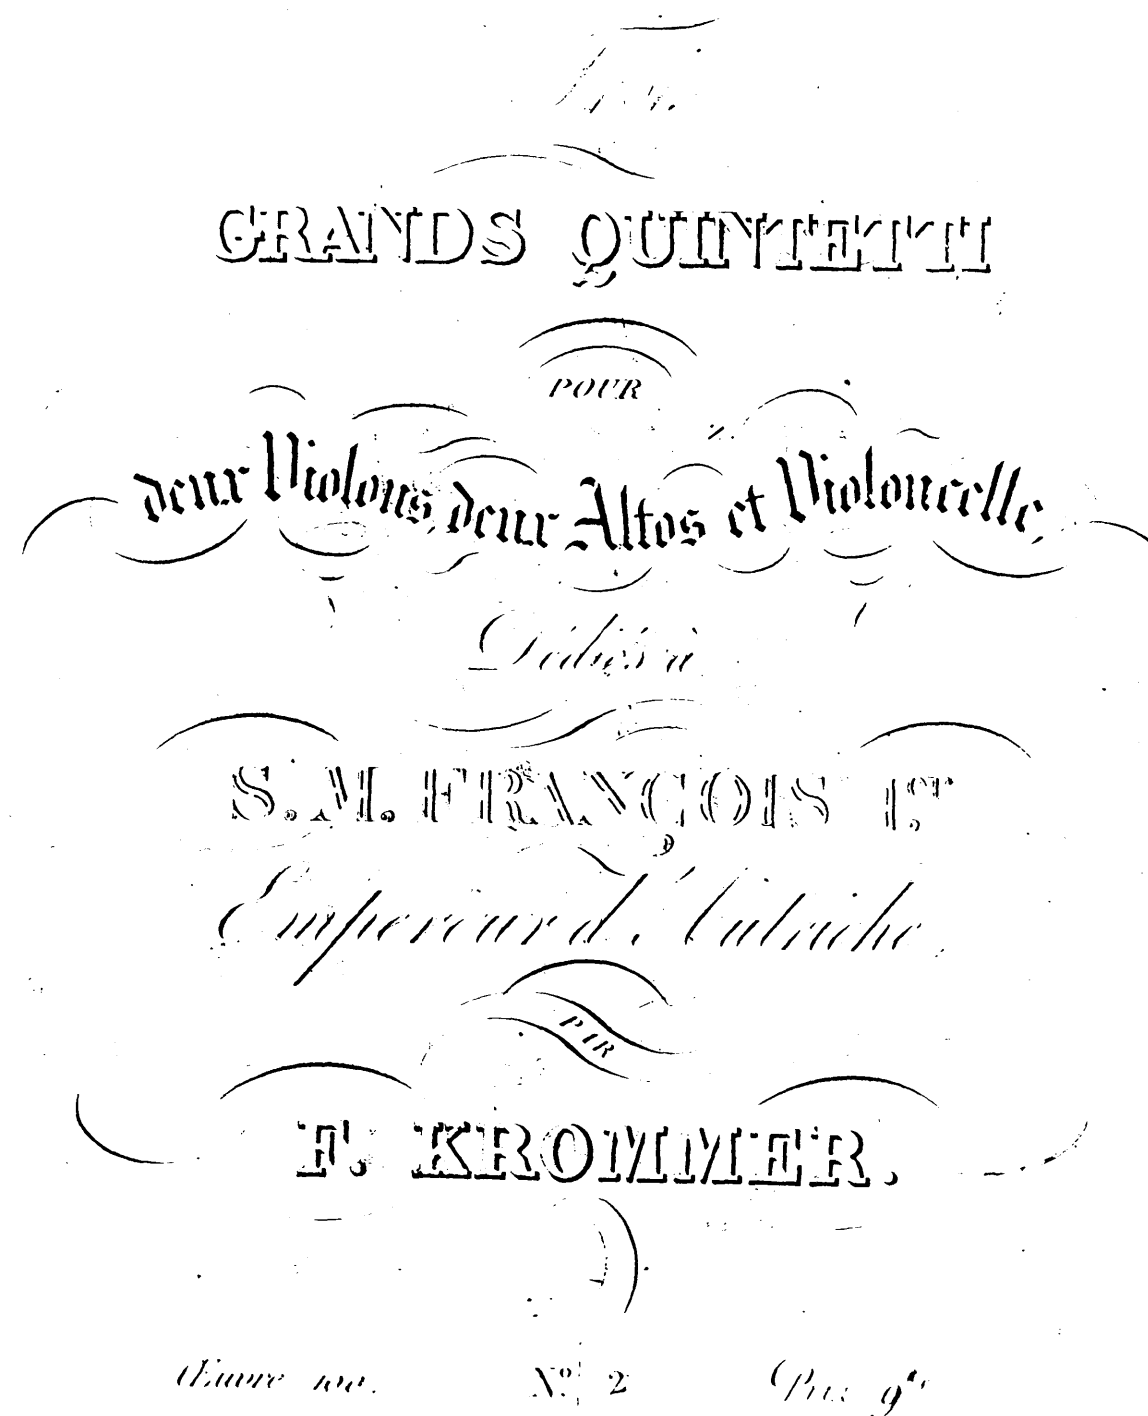 Trois
GRANDS QUINTETTI
POUR
deux Violons, deux Altos et Violoncelle,
Dédiés à
S. M. FRANÇOIS 1.er
Empereur d'Autriche,
PAR
F. KROMMER.
Œuvre 100. N.º 2 Prix 9